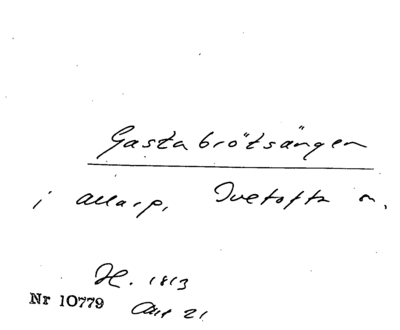 Gastabrötsängen
i Allarp, Ivetofta sn.
H. 1813
Nr 10779 Akt 21